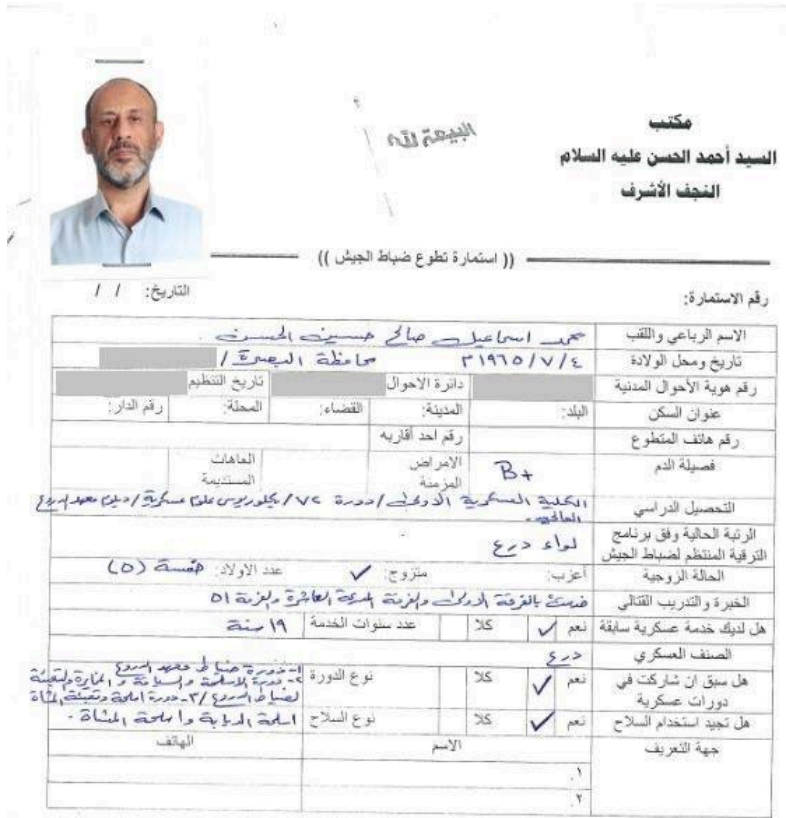 مكتب
السيد أحمد الحسن عليه السلام
النجف الأشرف
البيعة لله
(( استمارة تطوع ضباط الجيش ))
رقم الاستمارة: التاريخ: / /
الاسم الرباعي واللقب محمد اسماعيل صالح حسين الحسن
تاريخ ومحل الولادة ١٩٦٥/٧/٤ م محافظة البصرة /
رقم هوية الأحوال المدنية دائرة الاحوال تاريخ التنظيم
عنوان السكن البلد: المدينة: القضاء: المحلة: رقم الدار:
رقم هاتف المتطوع رقم احد أقاربه
فصيلة الدم B+ الامراض المزمنة العاهات المستديمة
التحصيل الدراسي الكلية العسكرية الاولى / دورة ٧٢ / بكلوريوس علوم عسكرية / دبلوم معهد الدروع العالي
الرتبة الحالية وفق برنامج الترقية المنتظم لضباط الجيش لواء درع
الحالة الزوجية أعزب: متزوج: ✓ عدد الاولاد: خمسة (٥)
الخبرة والتدريب القتالي خدمت بالفرقة الاولى والفرقة المدرعة العاشرة والفرقة ٥١
هل لديك خدمة عسكرية سابقة نعم ✓ كلا عدد سنوات الخدمة ١٩ سنة
الصنف العسكري درع
هل سبق ان شاركت في دورات عسكرية نعم ✓ كلا نوع الدورة ١- دورة ضباط معهد الدروع
٢- دورة الاسلحة والسياقة و المخابرة والتعبئة
لضباط الدروع / ٣- دورة اسلحة وتعبئة المشاة
هل تجيد استخدام السلاح نعم ✓ كلا نوع السلاح اسلحة الدبابة واسلحة المشاة .
جهة التعريف الاسم الهاتف
١.
٢.